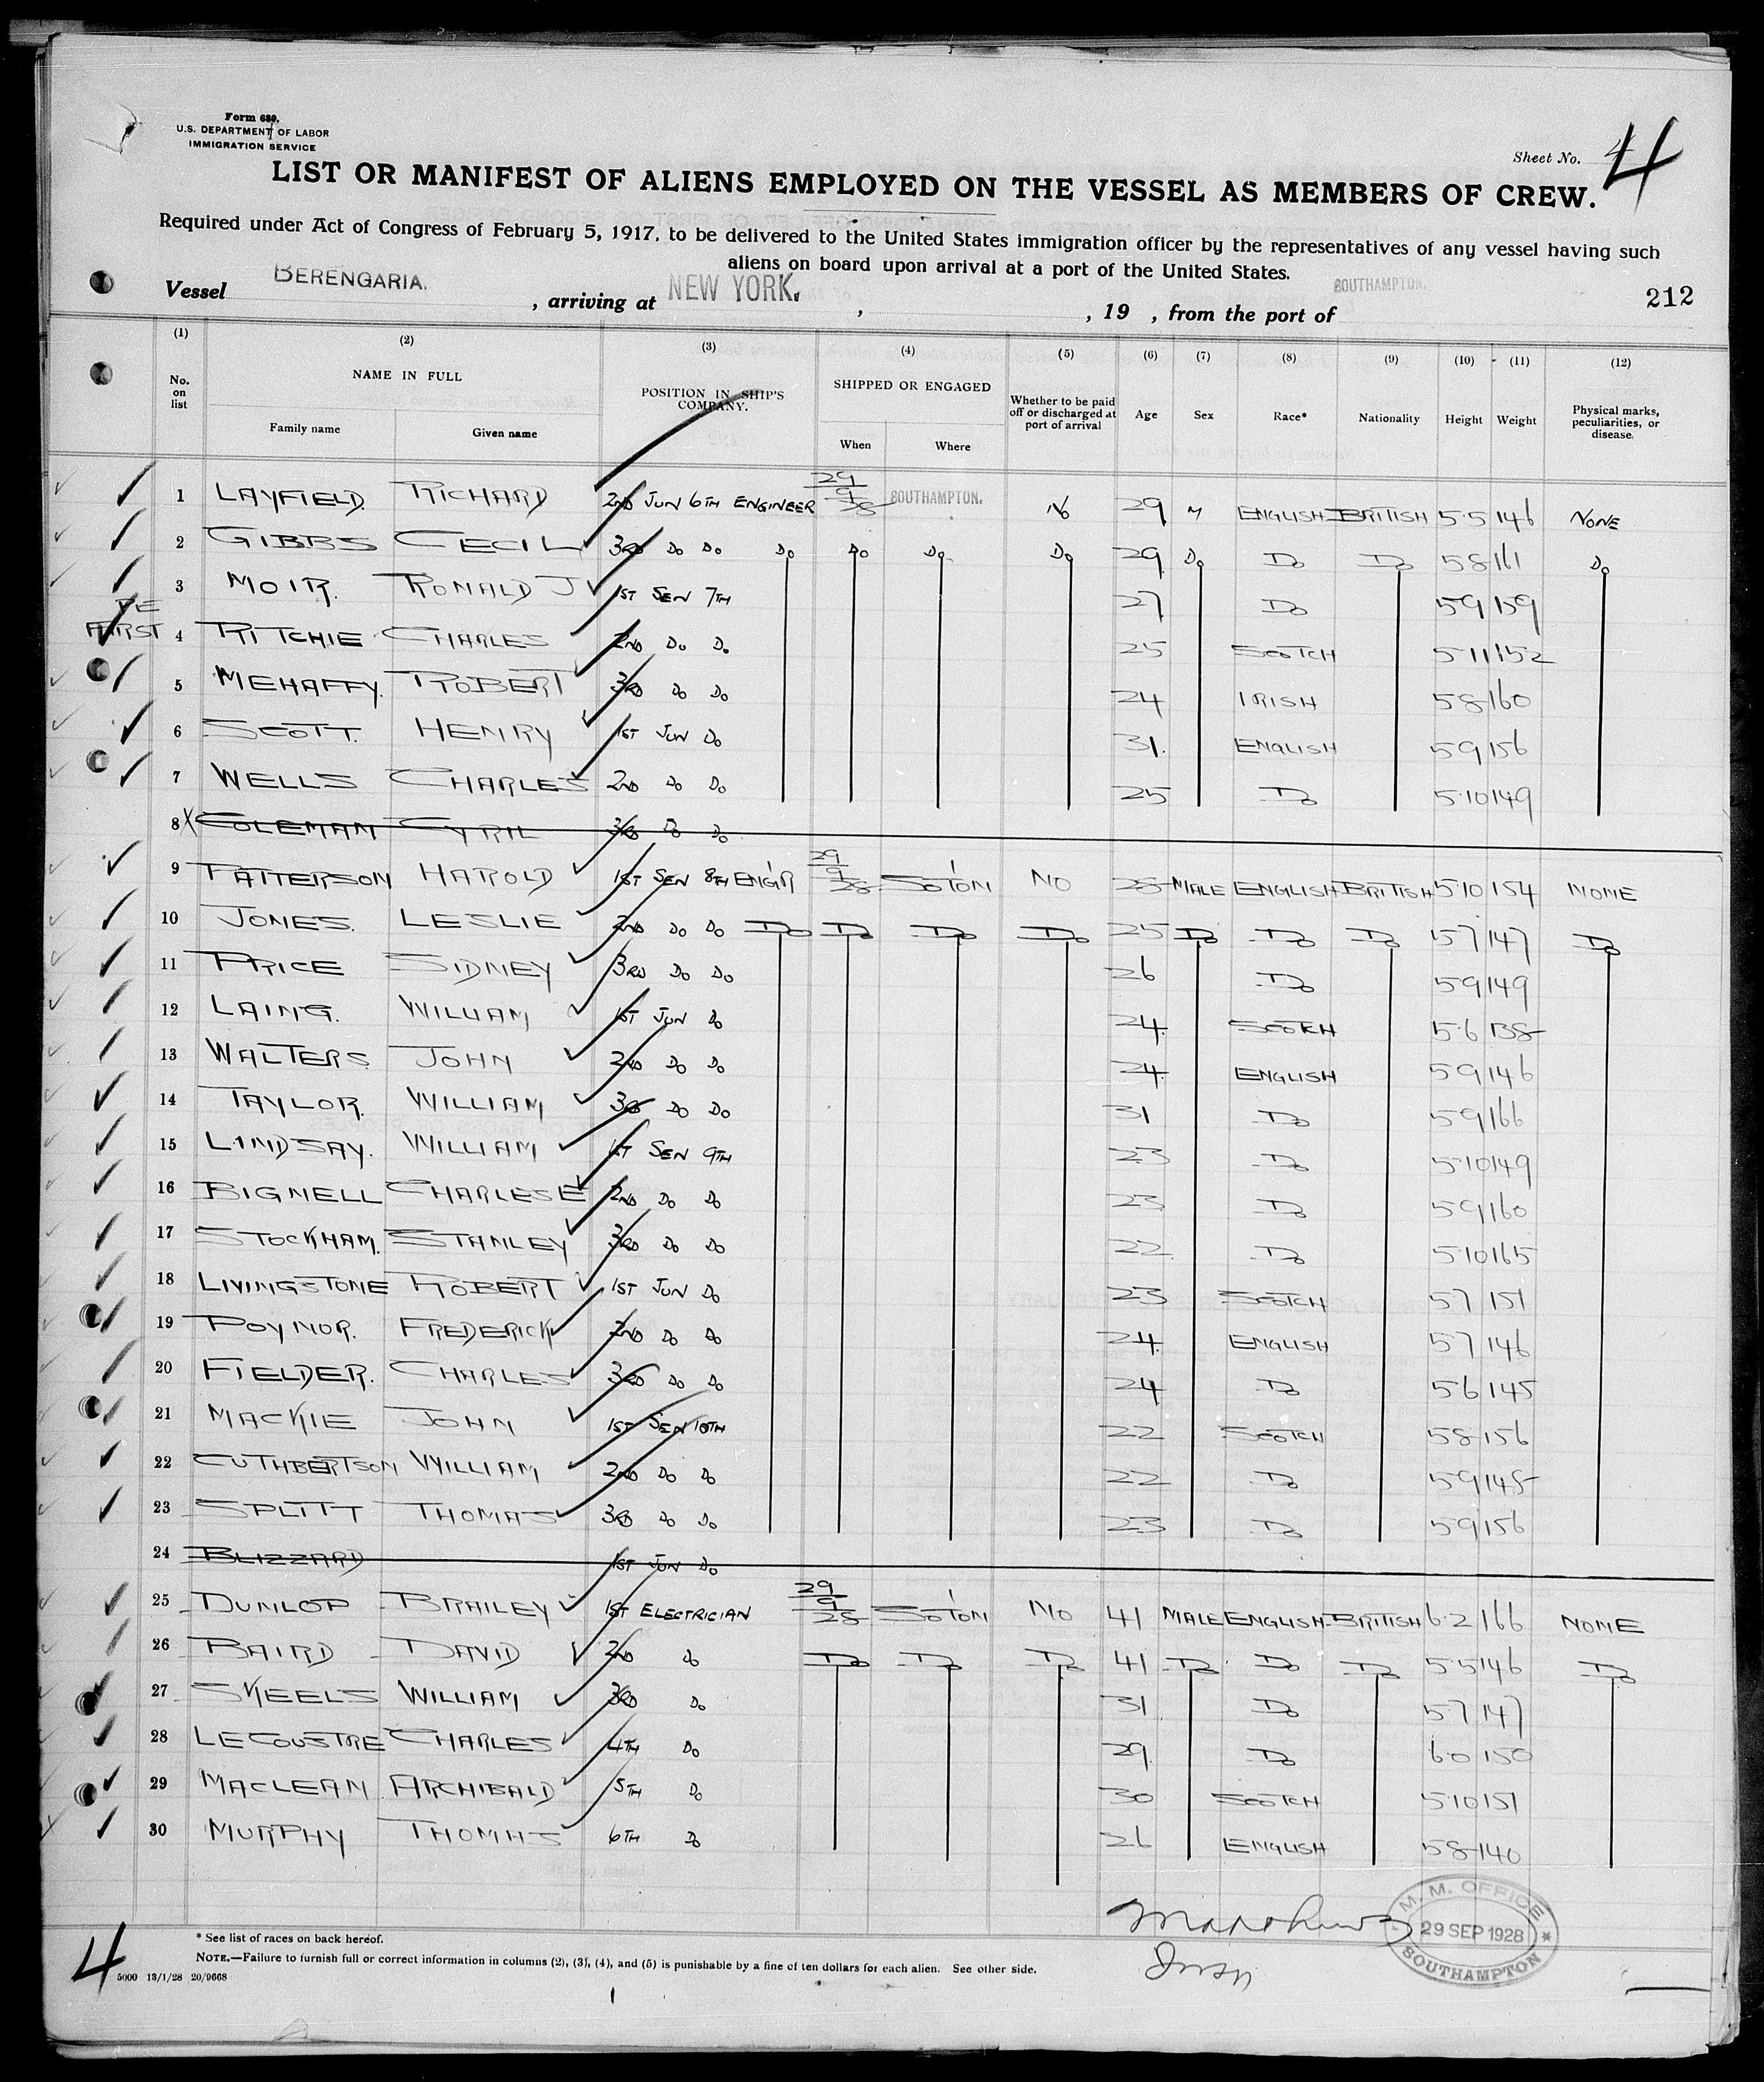 Form 680.
U.S. DEPARTMENT OF LABOR
IMMIGRATION SERVICE
Sheet No. 4
4
LIST OR MANIFEST OF ALIENS EMPLOYED ON THE VESSEL AS MEMBERS OF CREW.
Required under Act of Congress of February 5, 1917, to be delivered to the United States immigration officer by the representatives of any vessel having such
aliens on board upon arrival at a port of the United States.
Vessel BERENGARIA. , arriving at NEW YORK. , , 19 , from the port of SOUTHAMPTON. 212
(1) (2) (3) (4) (5) (6) (7) (8) (9) (10) (11) (12)
No. on list NAME IN FULL Family name Given name POSITION IN SHIP'S COMPANY. SHIPPED OR ENGAGED When Where Whether to be paid off or discharged at port of arrival Age Sex Race* Nationality Height Weight Physical marks, peculiarities, or disease.
1 LAYFIELD. RICHARD 2ND JUN 6TH ENGINEER 29/9/28 SOUTHAMPTON. No 29 M ENGLISH BRITISH 5.5 146 NONE
2 GIBBS CECIL 3RD DO DO DO DO DO DO 29 DO DO DO 5 8 161 DO
3 MOIR. RONALD J 1ST SEN 7TH 27 DO 5 9 159
4 RITCHIE CHARLES 2ND DO DO 25 SCOTCH 5 11 152
5 MEHAFFY. ROBERT 3RD DO DO 24 IRISH 5 8 160
6 SCOTT. HENRY 1ST JUN DO 31. ENGLISH 5 9 156
7 WELLS CHARLES 2ND DO DO 25 DO 5.10 149
8 X COLEMAN CYRIL 3RD DO DO
9 PATTERSON HAROLD 1ST SEN 8TH ENGIR 29/9/28 SOTON NO 25 MALE ENGLISH BRITISH 5.10 154 NONE
10 JONES. LESLIE 2ND DO DO DO DO DO DO 25 DO DO DO 5 7 147 DO
11 PRICE SIDNEY 3RD DO DO 26 DO 5 9 149
12 LAING. WILLIAM 1ST JUN DO 24. SCOTCH 5.6 138
13 WALTERS JOHN 2ND DO DO 24. ENGLISH 5 9 146
14 TAYLOR. WILLIAM 3RD DO DO 31 DO 5 9 166
15 LINDSAY. WILLIAM 1ST SEN 9TH 23 DO 5.10 149
16 BIGNELL CHARLES E 2ND DO DO 23 DO 5 9 160
17 STOCKHAM. STANLEY 3RD DO DO 22 DO 5.10 165
18 LIVINGSTONE ROBERT 1ST JUN DO 23 SCOTCH 5 7 151
19 POYNOR. FREDERICK 2ND DO DO 24. ENGLISH 5 7 146
20 FIELDER. CHARLES 3RD DO DO 24 DO 5 6 145
21 MACKIE JOHN 1ST SEN 10TH 22 SCOTCH 5 8 156
22 CUTHBERTSON WILLIAM 2ND DO DO 22 DO 5 9 148
23 SPLITT THOMAS 3RD DO DO 23 DO 5 9 156
24 BLIZZARD 1ST JUN DO
25 DUNLOP BRAILEY 1ST ELECTRICIAN 29/9/28 SOTON NO 41 MALE ENGLISH BRITISH 6.2 166 NONE
26 BAIRD DAVID 2ND DO DO DO DO 41 DO DO DO 5.5 146 DO
27 SKEELS WILLIAM 3RD DO 31 DO 5 7 147
28 LECOUSTRE CHARLES 4TH DO 29. DO 6.0 150
29 MACLEAN ARCHIBALD 5TH DO 30 SCOTCH 5.10 151
30 MURPHY THOMAS 6TH DO 26 ENGLISH 5 8 140
M. M. OFFICE
29 SEP 1928
SOUTHAMPTON
* See list of races on back hereof.
NOTE.—Failure to furnish full or correct information in columns (2), (3), (4), and (5) is punishable by a fine of ten dollars for each alien. See other side.
4
5000 13/1/28 20/9668